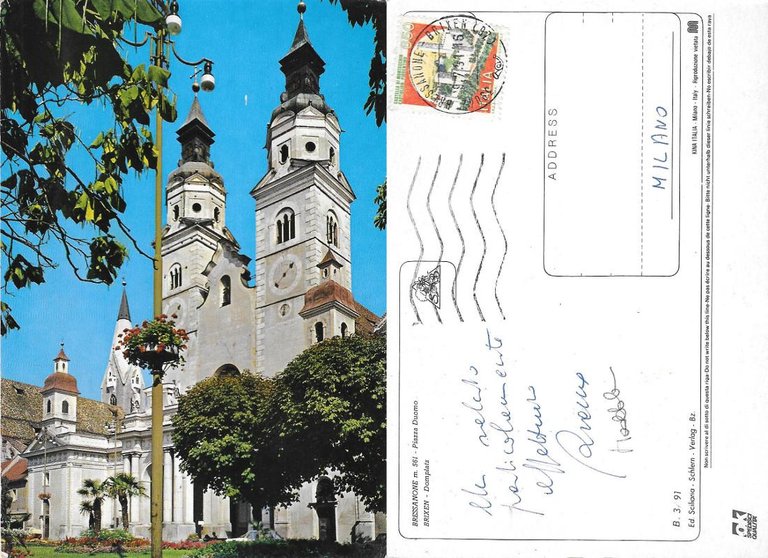 BRESSANONE m. 561 - Piazza Duomo
BRIXEN - Domplatz
BRESSANONE - BRIXEN
ITALIA
Un saluto
particolarmente
affettuoso
ADDRESS
MILANO
B. 3. 91
Ed. Sciliana - Schlern - Verlag - Bz.
KINA ITALIA - Milano - Italy - Riproduzione vietata
Non scrivere al di sotto di questa riga-Do not write below this line-No pas écrire au dessous de cette ligne. Bitte nicht unterhalb dieser linie schreiben-No escribir debajo de esta raya